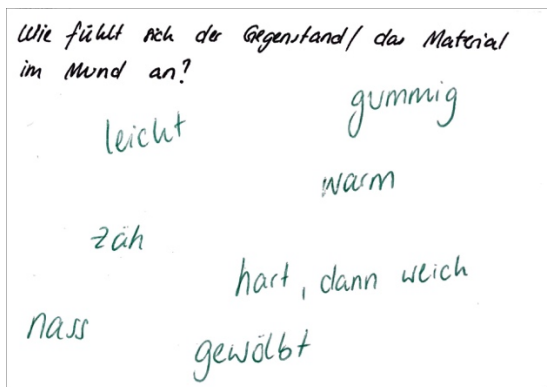 Wie fühlt sich der Gegenstand/ das Material
im Mund an?
gummig
leicht
warm
zäh
hart, dann weich
nass
gewölbt